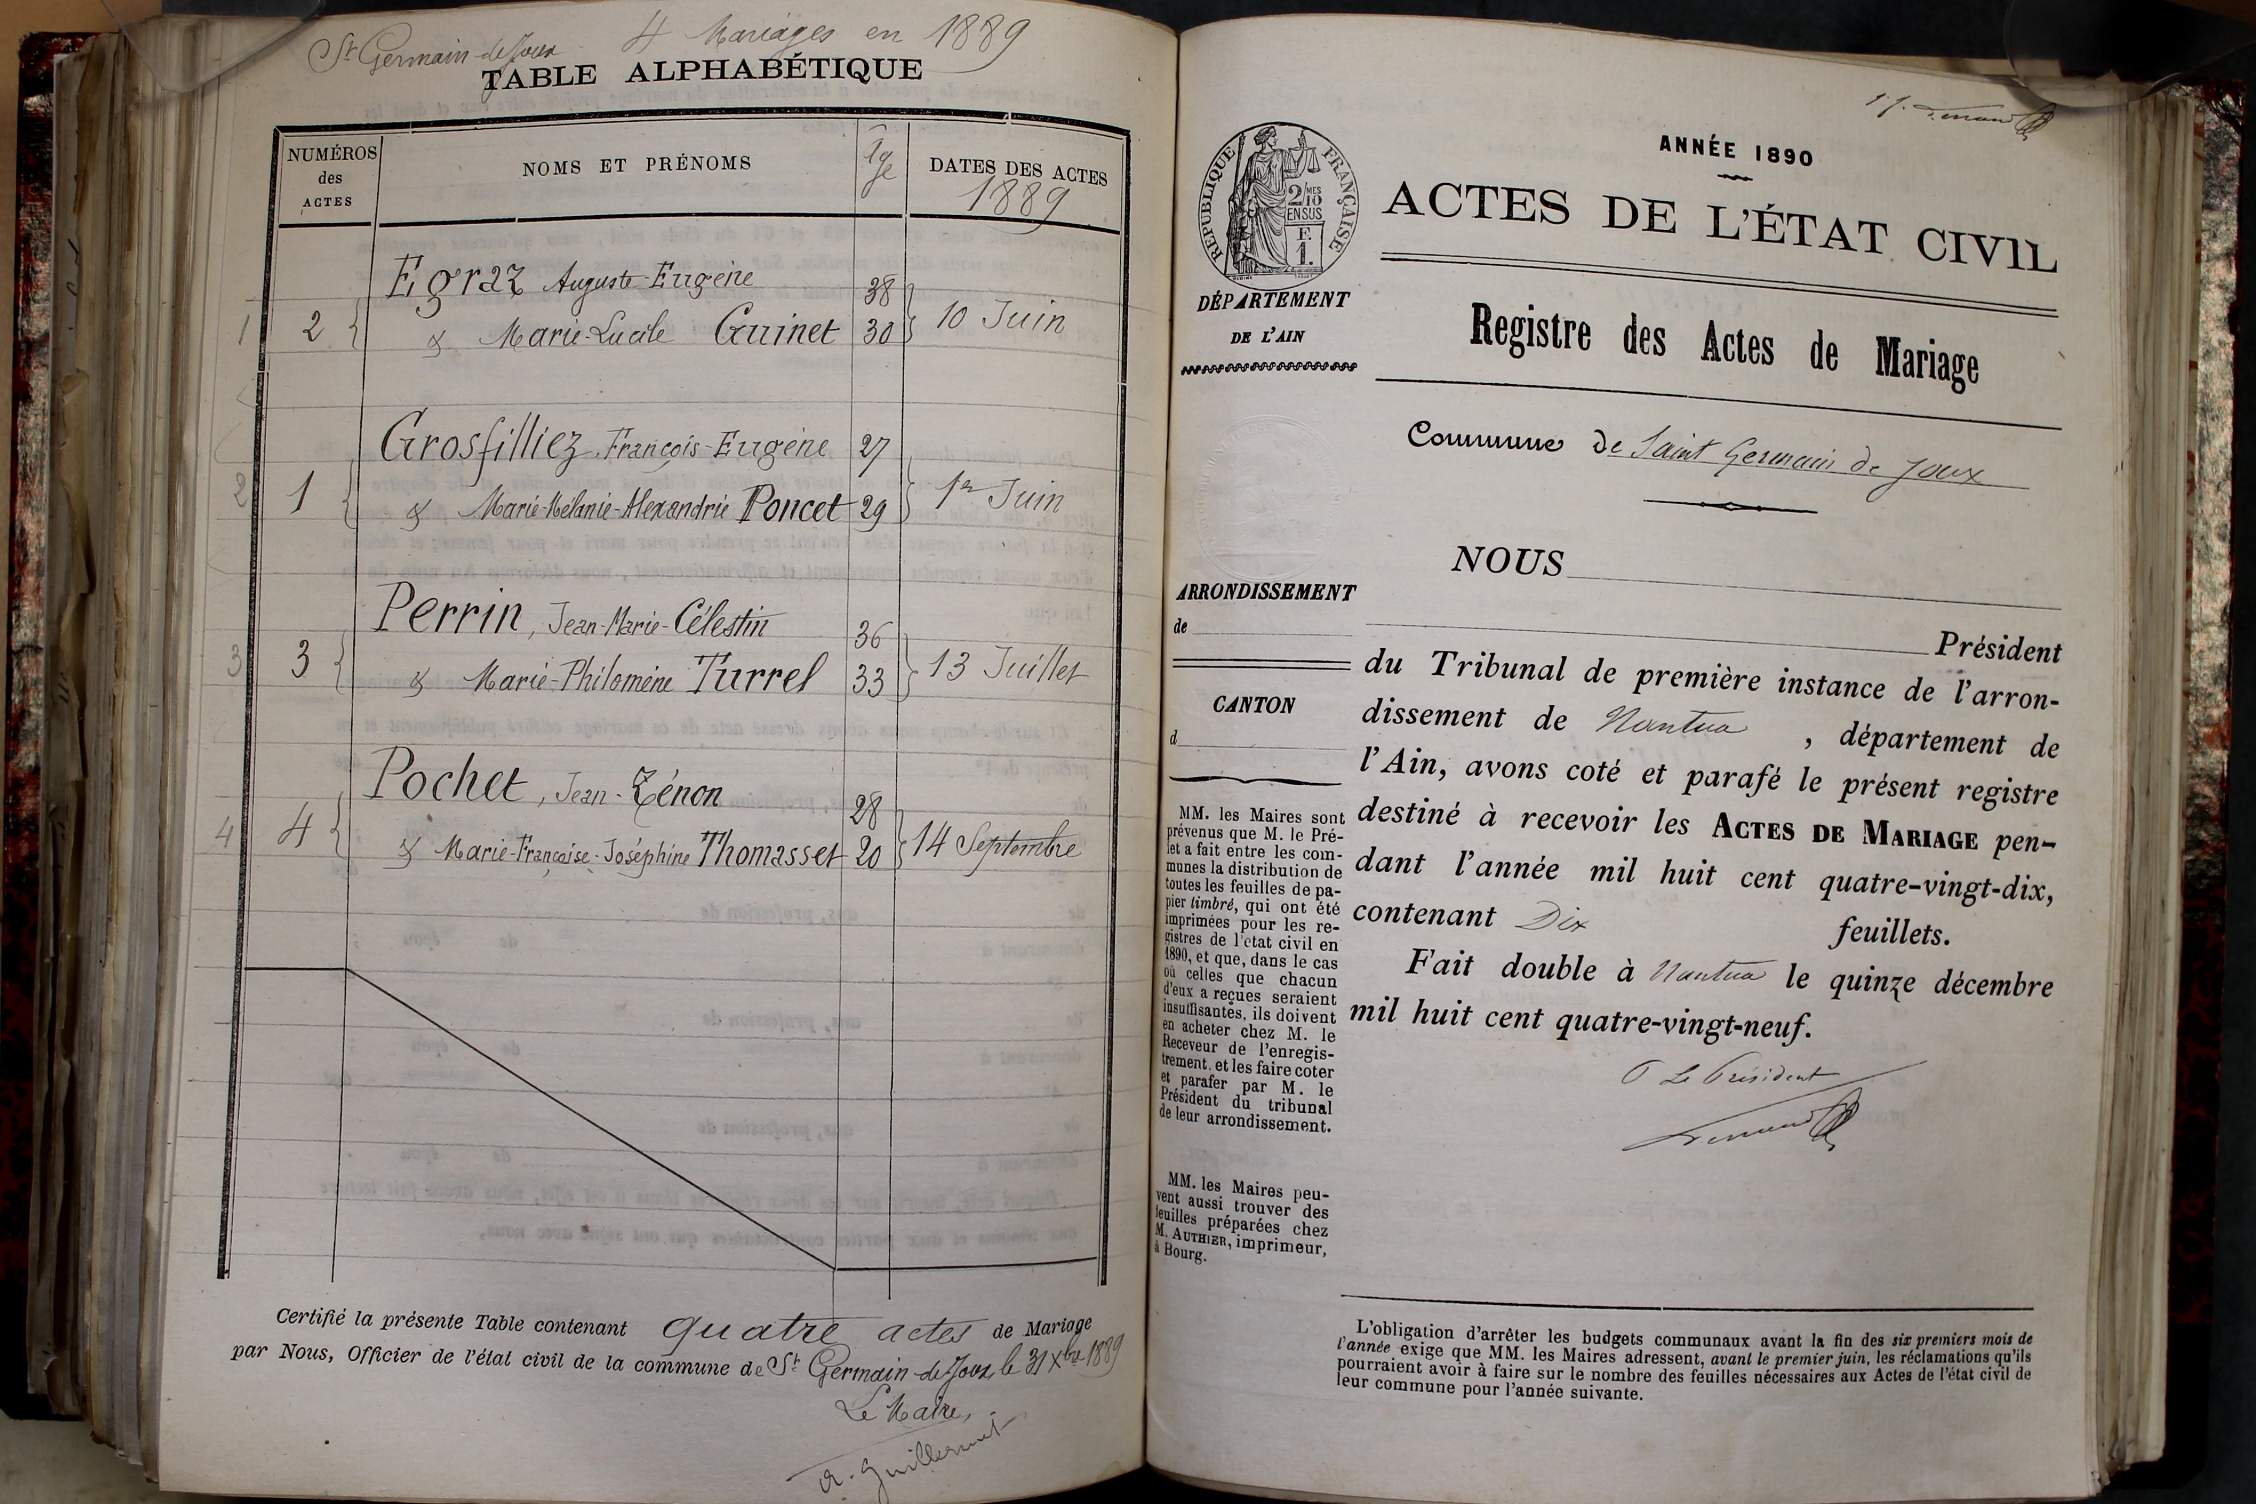 St Germain-de-Joux 4 Mariages en 1889
TABLE ALPHABÉTIQUE
NUMÉROS
des
ACTES
NOMS ET PRÉNOMS
Age
DATES DES ACTES
1889
Egraz Auguste-Eugène 38
1 2 & Marie-Lucile Guinet 30 10 Juin
Grosfilliez, François-Eugène 27
2 1 & Marie-Mélanie-Alexandrie Poncet 29 1er Juin
Perrin, Jean-Marie-Célestin 36
3 3 & Marie-Philomène Turrel 33 13 Juillet
Pochet, Jean-Zénon 28
4 4 & Marie-Françoise-Joséphine Thomasset 20 14 Septembre
Certifié la présente Table contenant quatre actes de Mariage
par Nous, Officier de l'état civil de la commune de St Germain-de-Joux, le 31 Xbre 1889
Le Maire,
A. Guillermet
ANNÉE 1890
RÉPUBLIQUE FRANÇAISE
2/10MES
EN SUS
E
1.
ACTES DE L'ÉTAT CIVIL
DÉPARTEMENT
DE L'AIN
Registre des Actes de Mariage
Commune de Saint Germain de Joux
NOUS
ARRONDISSEMENT
de
CANTON
d
Président
du Tribunal de première instance de l'arron-
dissement de Nantua, département de
l'Ain, avons coté et parafé le présent registre
destiné à recevoir les ACTES DE MARIAGE pen-
dant l'année mil huit cent quatre-vingt-dix,
contenant Dix feuillets.
Fait double à Nantua le quinze décembre
mil huit cent quatre-vingt-neuf.
P Le Président
MM. les Maires sont
prévenus que M. le Pré-
fet a fait entre les com-
munes la distribution de
toutes les feuilles de pa-
pier timbré, qui ont été
imprimées pour les re-
gistres de l'état civil en
1890, et que, dans le cas
où celles que chacun
d'eux a reçues seraient
insuffisantes, ils doivent
en acheter chez M. le
Receveur de l'enregis-
trement, et les faire coter
et parafer par M. le
Président du tribunal
de leur arrondissement.
MM. les Maires peu-
vent aussi trouver des
feuilles préparées chez
M. AUTHIER, imprimeur,
à Bourg.
L'obligation d'arrêter les budgets communaux avant la fin des six premiers mois de
l'année exige que MM. les Maires adressent, avant le premier juin, les réclamations qu'ils
pourraient avoir à faire sur le nombre des feuilles nécessaires aux Actes de l'état civil de
leur commune pour l'année suivante.